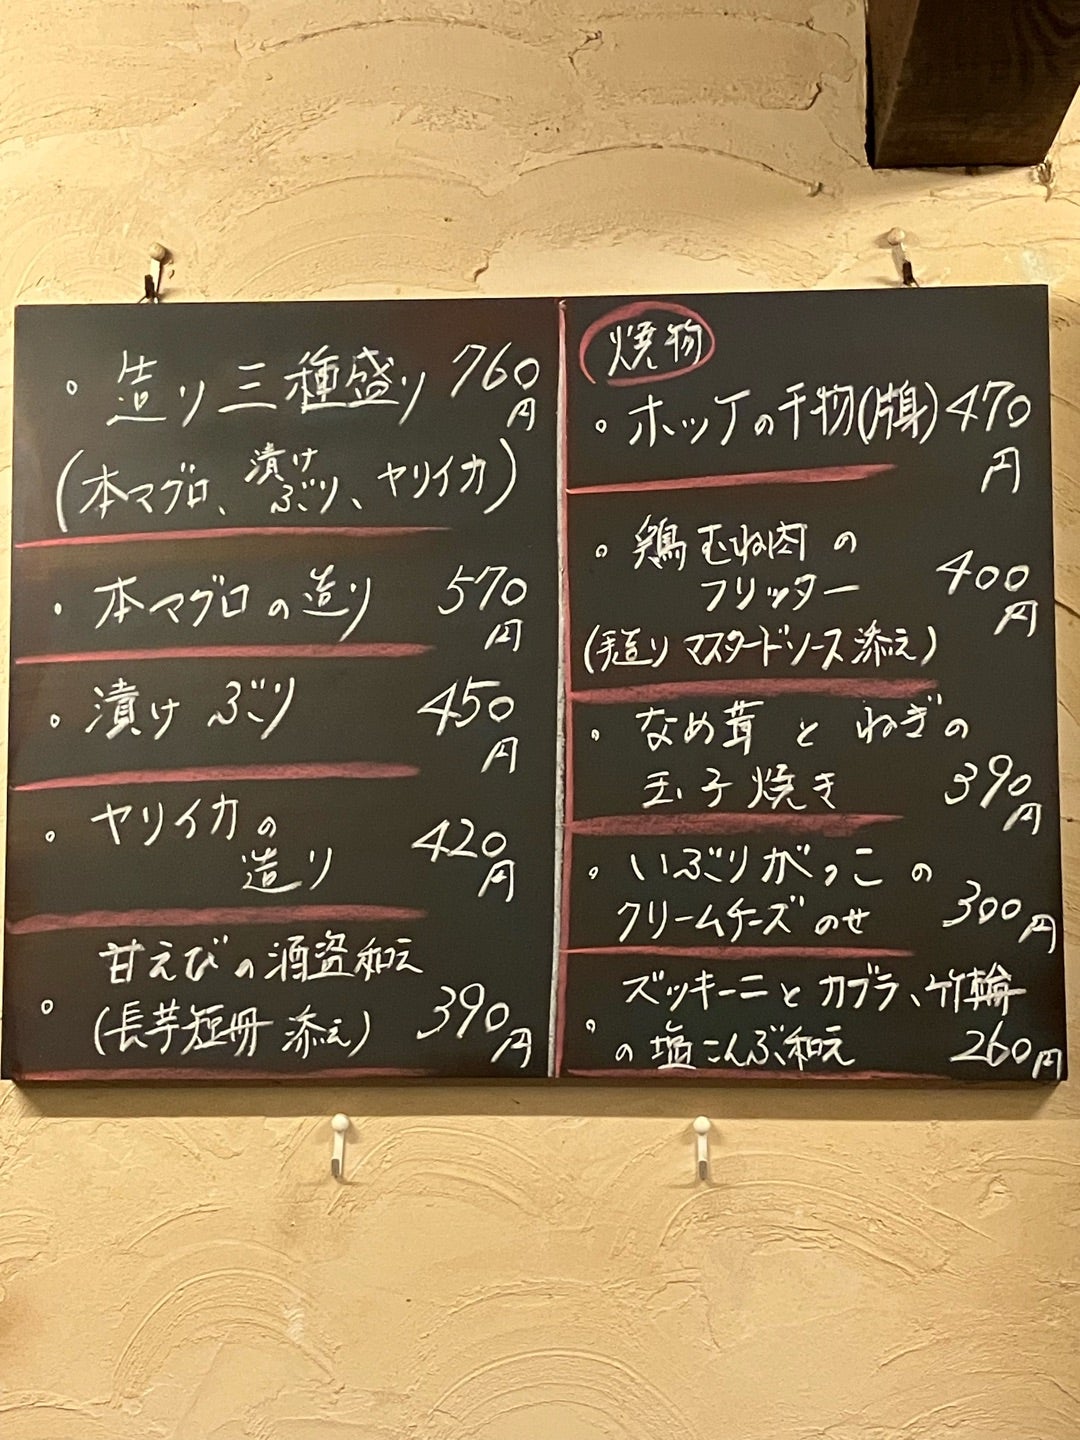 。造り三種盛り 760円
(本マグロ、漬けぶり、ヤリイカ)
。本マグロの造り 570円
。漬けぶり 450円
。ヤリイカの
造り 420円
甘えびの酒盗和え
。(長芋短冊 添え) 390円
焼物
。ホッケの干物(片身) 470円
。鶏むね肉の
フリッター 400円
(手造りマスタードソース添え)
。なめ茸とねぎの
玉子焼き 390円
。いぶりがっこの
クリームチーズのせ 300円
ズッキーニとカブラ、竹輪
。の塩こんぶ和え 260円